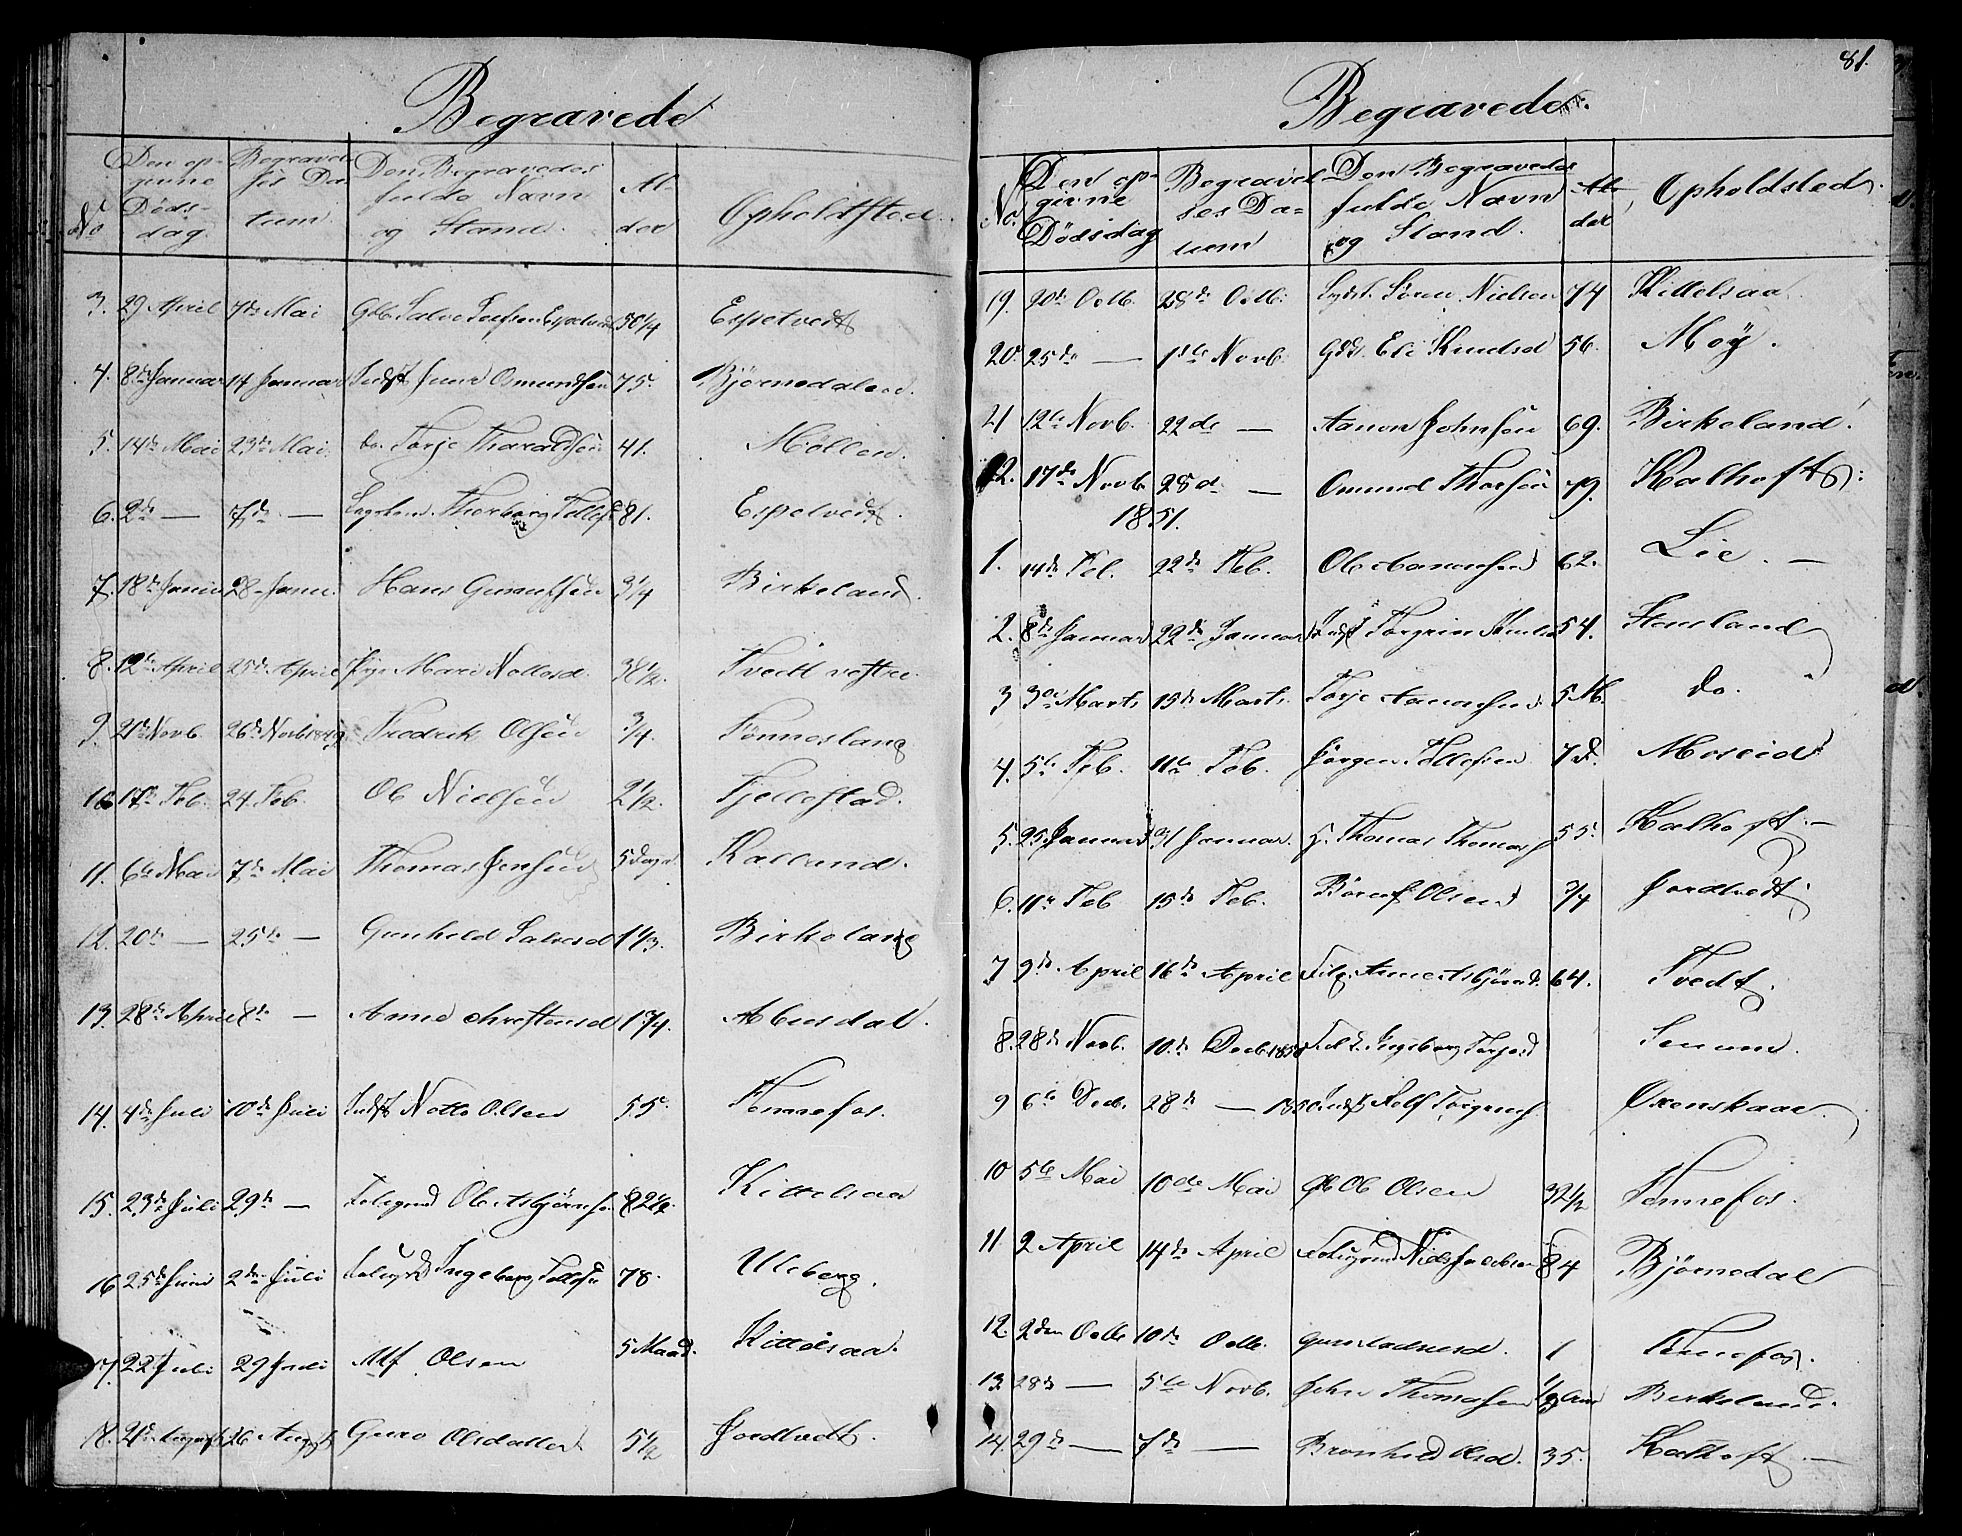 Begravede
No
Den op-
givne
Døds-
dag.
Begravel-
ses Da-
tum
Den Begravedes
fulde Navn
og Stand.
Al-
der
Opholdsted.
3. 29 April 7de Mai Gbr Salve Espetvedt 50 1/4 Espetvedt
4. 8de Januar 14 Januar Indst Osmundsen 75. Bjørnedalen.
5. 14de Mai 23de Mai. do. Torje Tharaldsen 41. Møllen.
6. 2de — 7de — Thorborg 81. Espetvedt.
7. 18de 28 Hans Gunulfsen 3/4 Birkeland.
8. 12te April 25de April Mari Nottosd. 3 1/2. Tveitt vestre.
9. 21de Novb. 26de Novb 1849. Fredrik Olsen 3/4. Tønnesland
10 17de Feb. 24. Feb. Ole Nielsen 2 1/2. Fjellestad.
11. 6te Mai 7de Mai Thomas Jensen 5 Dage. Kalland.
12. 20de — 25de — Gunhild Salvesd 1 1/3. Birkeland
13. 28de April 8de — Anne 1 3/4. Abusdal.
14. 4de Juli 10de Juli Indst Notto Olsen 55. Fennefos.
15. 23de Juli 29de — Ole Asbjørnsen 82 Kittelsaa
16 25de Juni 2den Juli Ingeborg 78. Uleberg.
17. 22 Juli 29 Juli Alf Olsen 5 Maad. Kittelsaa.
18. 21de August 26 August Guro Olsdatter 5 1/2 Jordtvedt.
81.
Begravede.
No.
Den op-
givne
Dødsdag
Begravel-
ses Da-
tum
Den Begravedes
fulde Navn
og Stand.
Al-
der
Opholdsted.
19. 20de Octb. 28de Octb. Søren Nielsen 74 Kittelsaa
20. 25de — 1ste Novb. Eli Knudsd 56. Moÿ.
21 12te Novb. 22de — Aanon Johnsen 69. Birkeland.
22. 17de Novb. 28de — Omund Thorsen 79. Kalhoft.
1851.
1. 14de Feb. 22de Feb. Ole Aanonsen 62. Lie. —
2. 8de Januar 22de Januar Indst Torgrim 54. Stensland
3 3die Marts 15de Marts. Torje Aanonsen 5 M. do.
4. 5te Feb. 11te Feb. Jørgen Tellefsen 7 D. Moseid
5. 25 Januar 31 Januar. Thomas 55. Kalhoft. —
6. 11te Feb 15de Feb. Olsen 3/4 Jordtvedt.
7 9de April 16de April Anne Asbjørnsd. 64. Tvedt.
8. 28de Novb. 10de Decb. 1850 Ingeborg Torjesd Senum.
9 6te Decb. 28de — 1850. Indst Oxenskaar.
10 5te Mai 10de Mai Ole Olsen 32 1/2 Fennefos.
11 2 April 14de April Niels Jacobsen 84 Bjørnedal
12. 2den Octb 10de Octb. 1 Fennefos.
13. 28de — 5te Novb. John Thomasen Birkeland.
14. 29de — 7de — Brønhild Olsd. 35. Kalhoft —